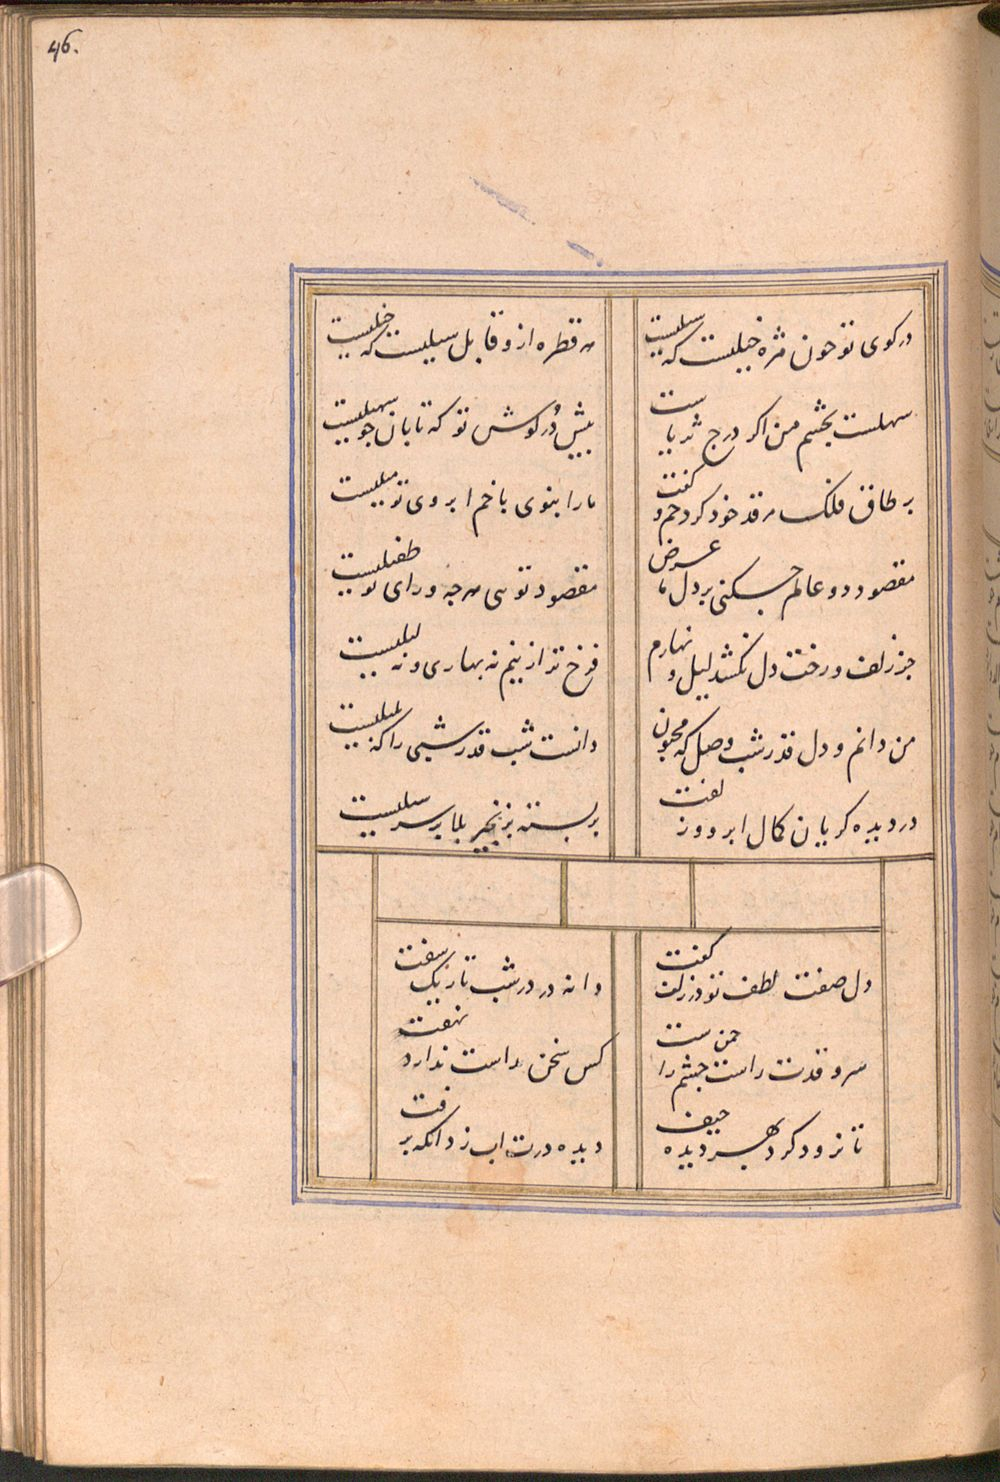 46.
در کوی تو خون مژه خیلیست که سیلیست
هر قطره ازو قابل سیلیست که خیلیست
سهلست بچشم من اگر درج ثریاست
پیش دُر گوش تو که تابان چو سهیلیست
بر طاق فلک مه قد خود کرد خم و گفت
ما را بنوی با خم ابروی تو میلیست
مقصود دو عالم چو بسکنی بر دل ما عرض
مقصود تویی هرچه ورای تو طفیلیست
جز زلف و رخت دل نکشد لیل و نهارم
فرخ تر ازینم نه بهاری و نه لیلیست
من دانم و دل قدر شب وصل که مجنون
دانست شب قدر شبی را که بلیلیست
در دیده گریان کمال ابرو و زلفت
بر بسته بزنجیر بلا بر سر سیلیست
دل صفت لطف تو در زلف گفت
دانه در در شب تاریک سفت
سرو قدت راست چشم را چمن ست
کس سخن راست ندارد نهفت
تا نرود گرد دهر دیده حیف
دیده درت اب زد انکه برفت